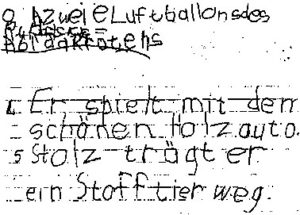 zwei e Luftballons des
Er spielt mit dem
schönen Holzauto.
5 Stolz trägt er
ein Stofftier weg.